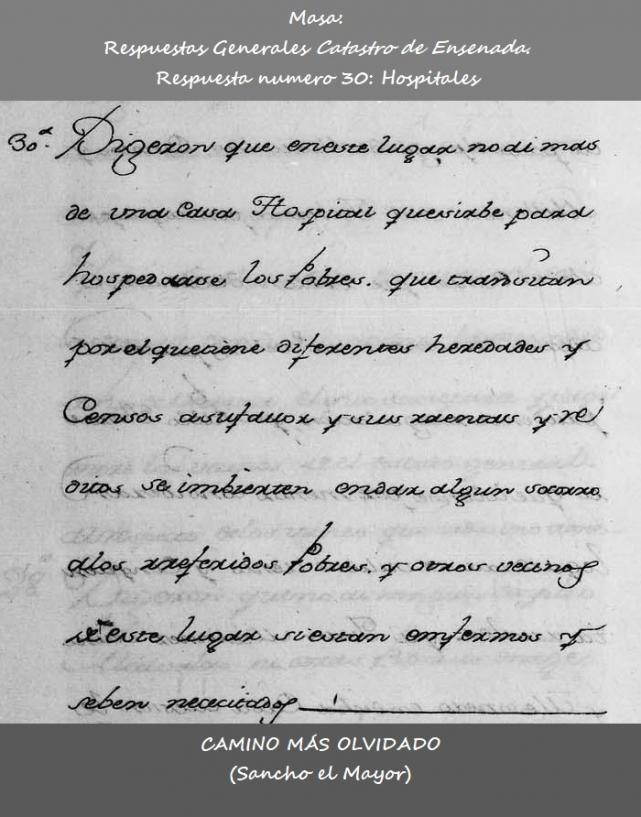 Masa:
Respuestas Generales Catastro de Ensenada.
Respuesta numero 30: Hospitales
30ª. Digeron que eneste lugar no ai mas
de una Casa Hospital quesirbe para
hospedarse los Pobres. que transitan
por el quetiene diferentes heredades y
Censos asufauor y sus rrentas y re
ditos se imbierten endar algun socorro
alos rreferidos Pobres. y otros vecinos
de este lugar siestan enfermos y
seben necesitados
CAMINO MÁS OLVIDADO
(Sancho el Mayor)